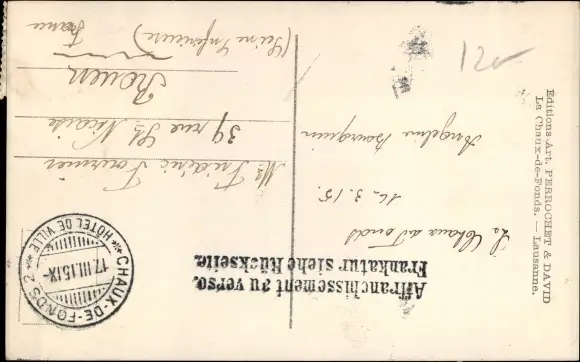 Editions-Art. PERROCHET & DAVID
La Chaux-de-Fonds. — Lausanne.
La Chaux de Fonds
16. 3. 15.
Angelin Bourquin
Affranchissement au verso.
Frankatur siehe Rückseite.
Mr Frédéric Fournier
39 rue St Nicaise
Rouen
(Seine Inférieure)
France
CHAUX-DE-FONDS 2
HÔTEL DE VILLE
17.III.15.IX-
12